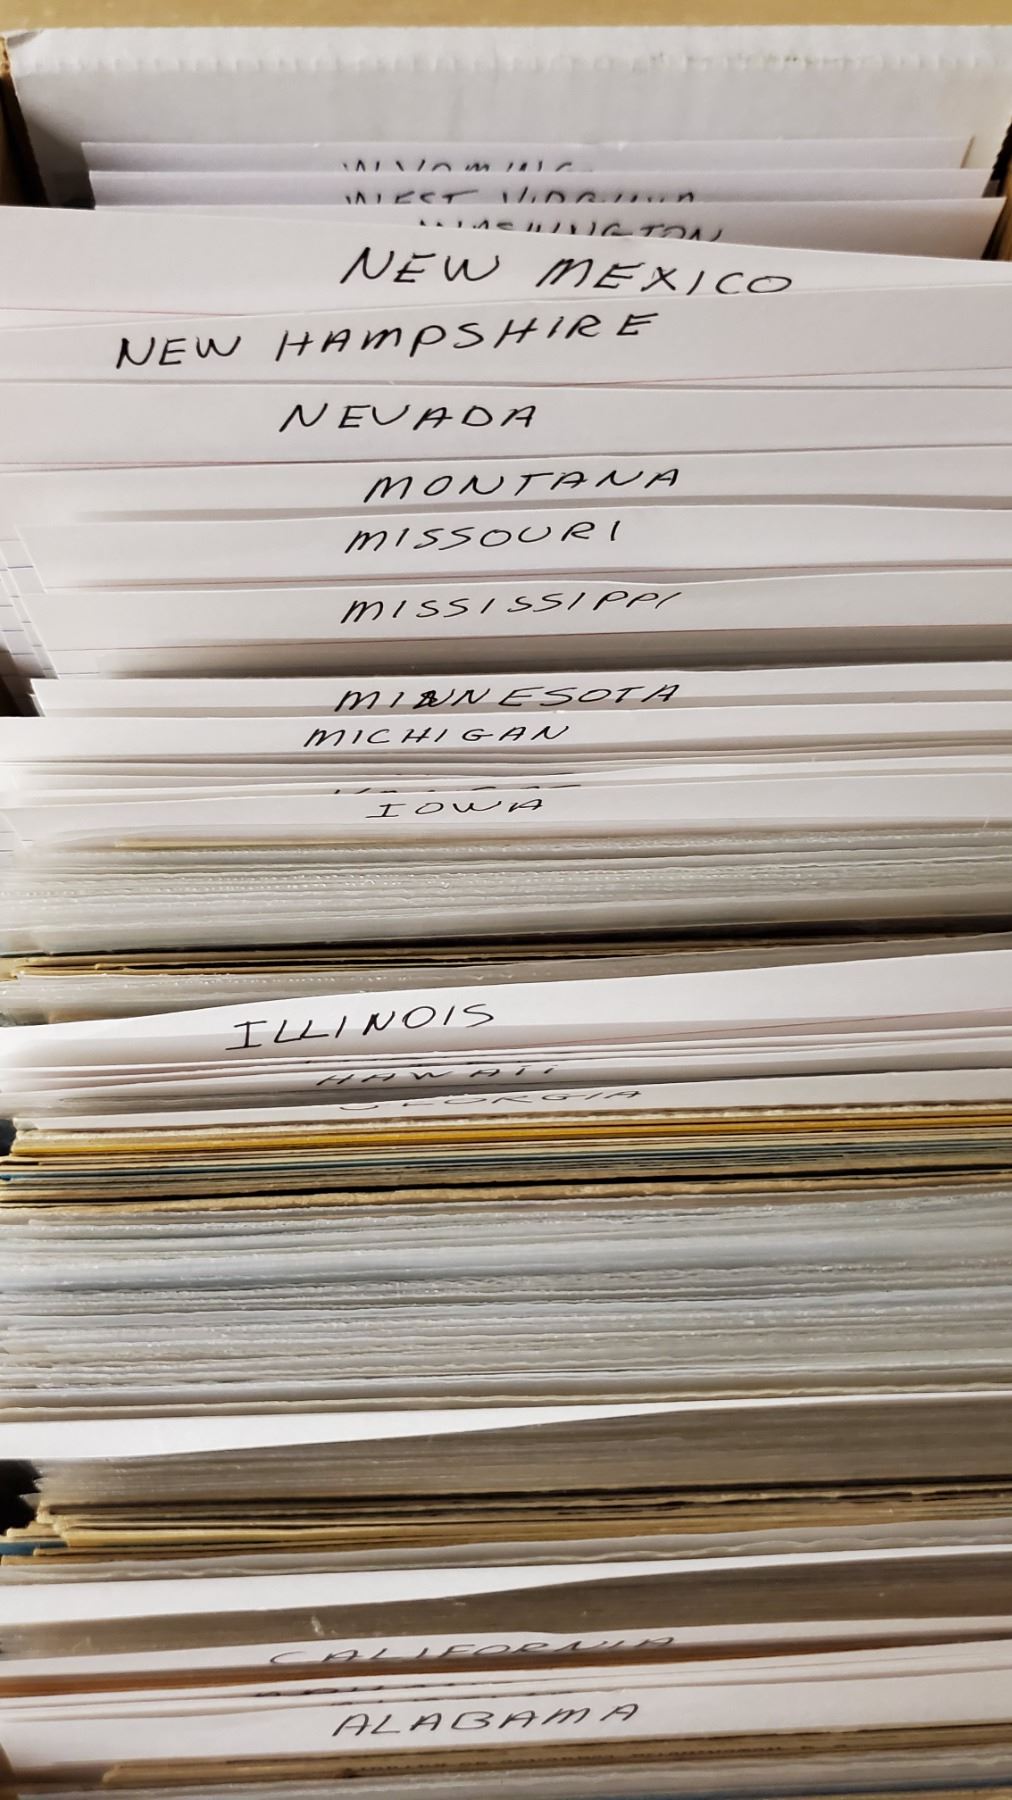 WYOMING
WEST VIRGINIA
WASHINGTON
NEW MEXICO
NEW HAMPSHIRE
NEVADA
MONTANA
MISSOURI
MISSISSIPPI
MINNESOTA
MICHIGAN
IOWA
ILLINOIS
HAWAII
GEORGIA
CALIFORNIA
ALABAMA